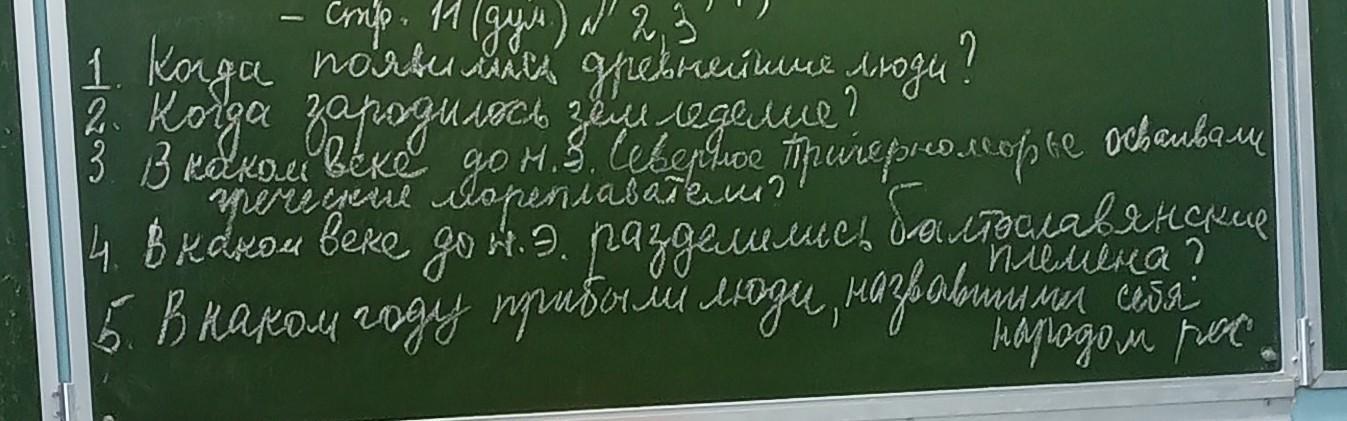 - стр. 11 (дум) № 2,3
1. Когда появились древнейшие люди?
2. Когда зародилось земледелие?
3 В каком веке до н.э. Северное Причерноморье осваивали
греческие мореплаватели?
4. В каком веке до н.э. разделились балтославянские
племена?
5. В каком году прибыли люди, назвавшими себя
народом рос